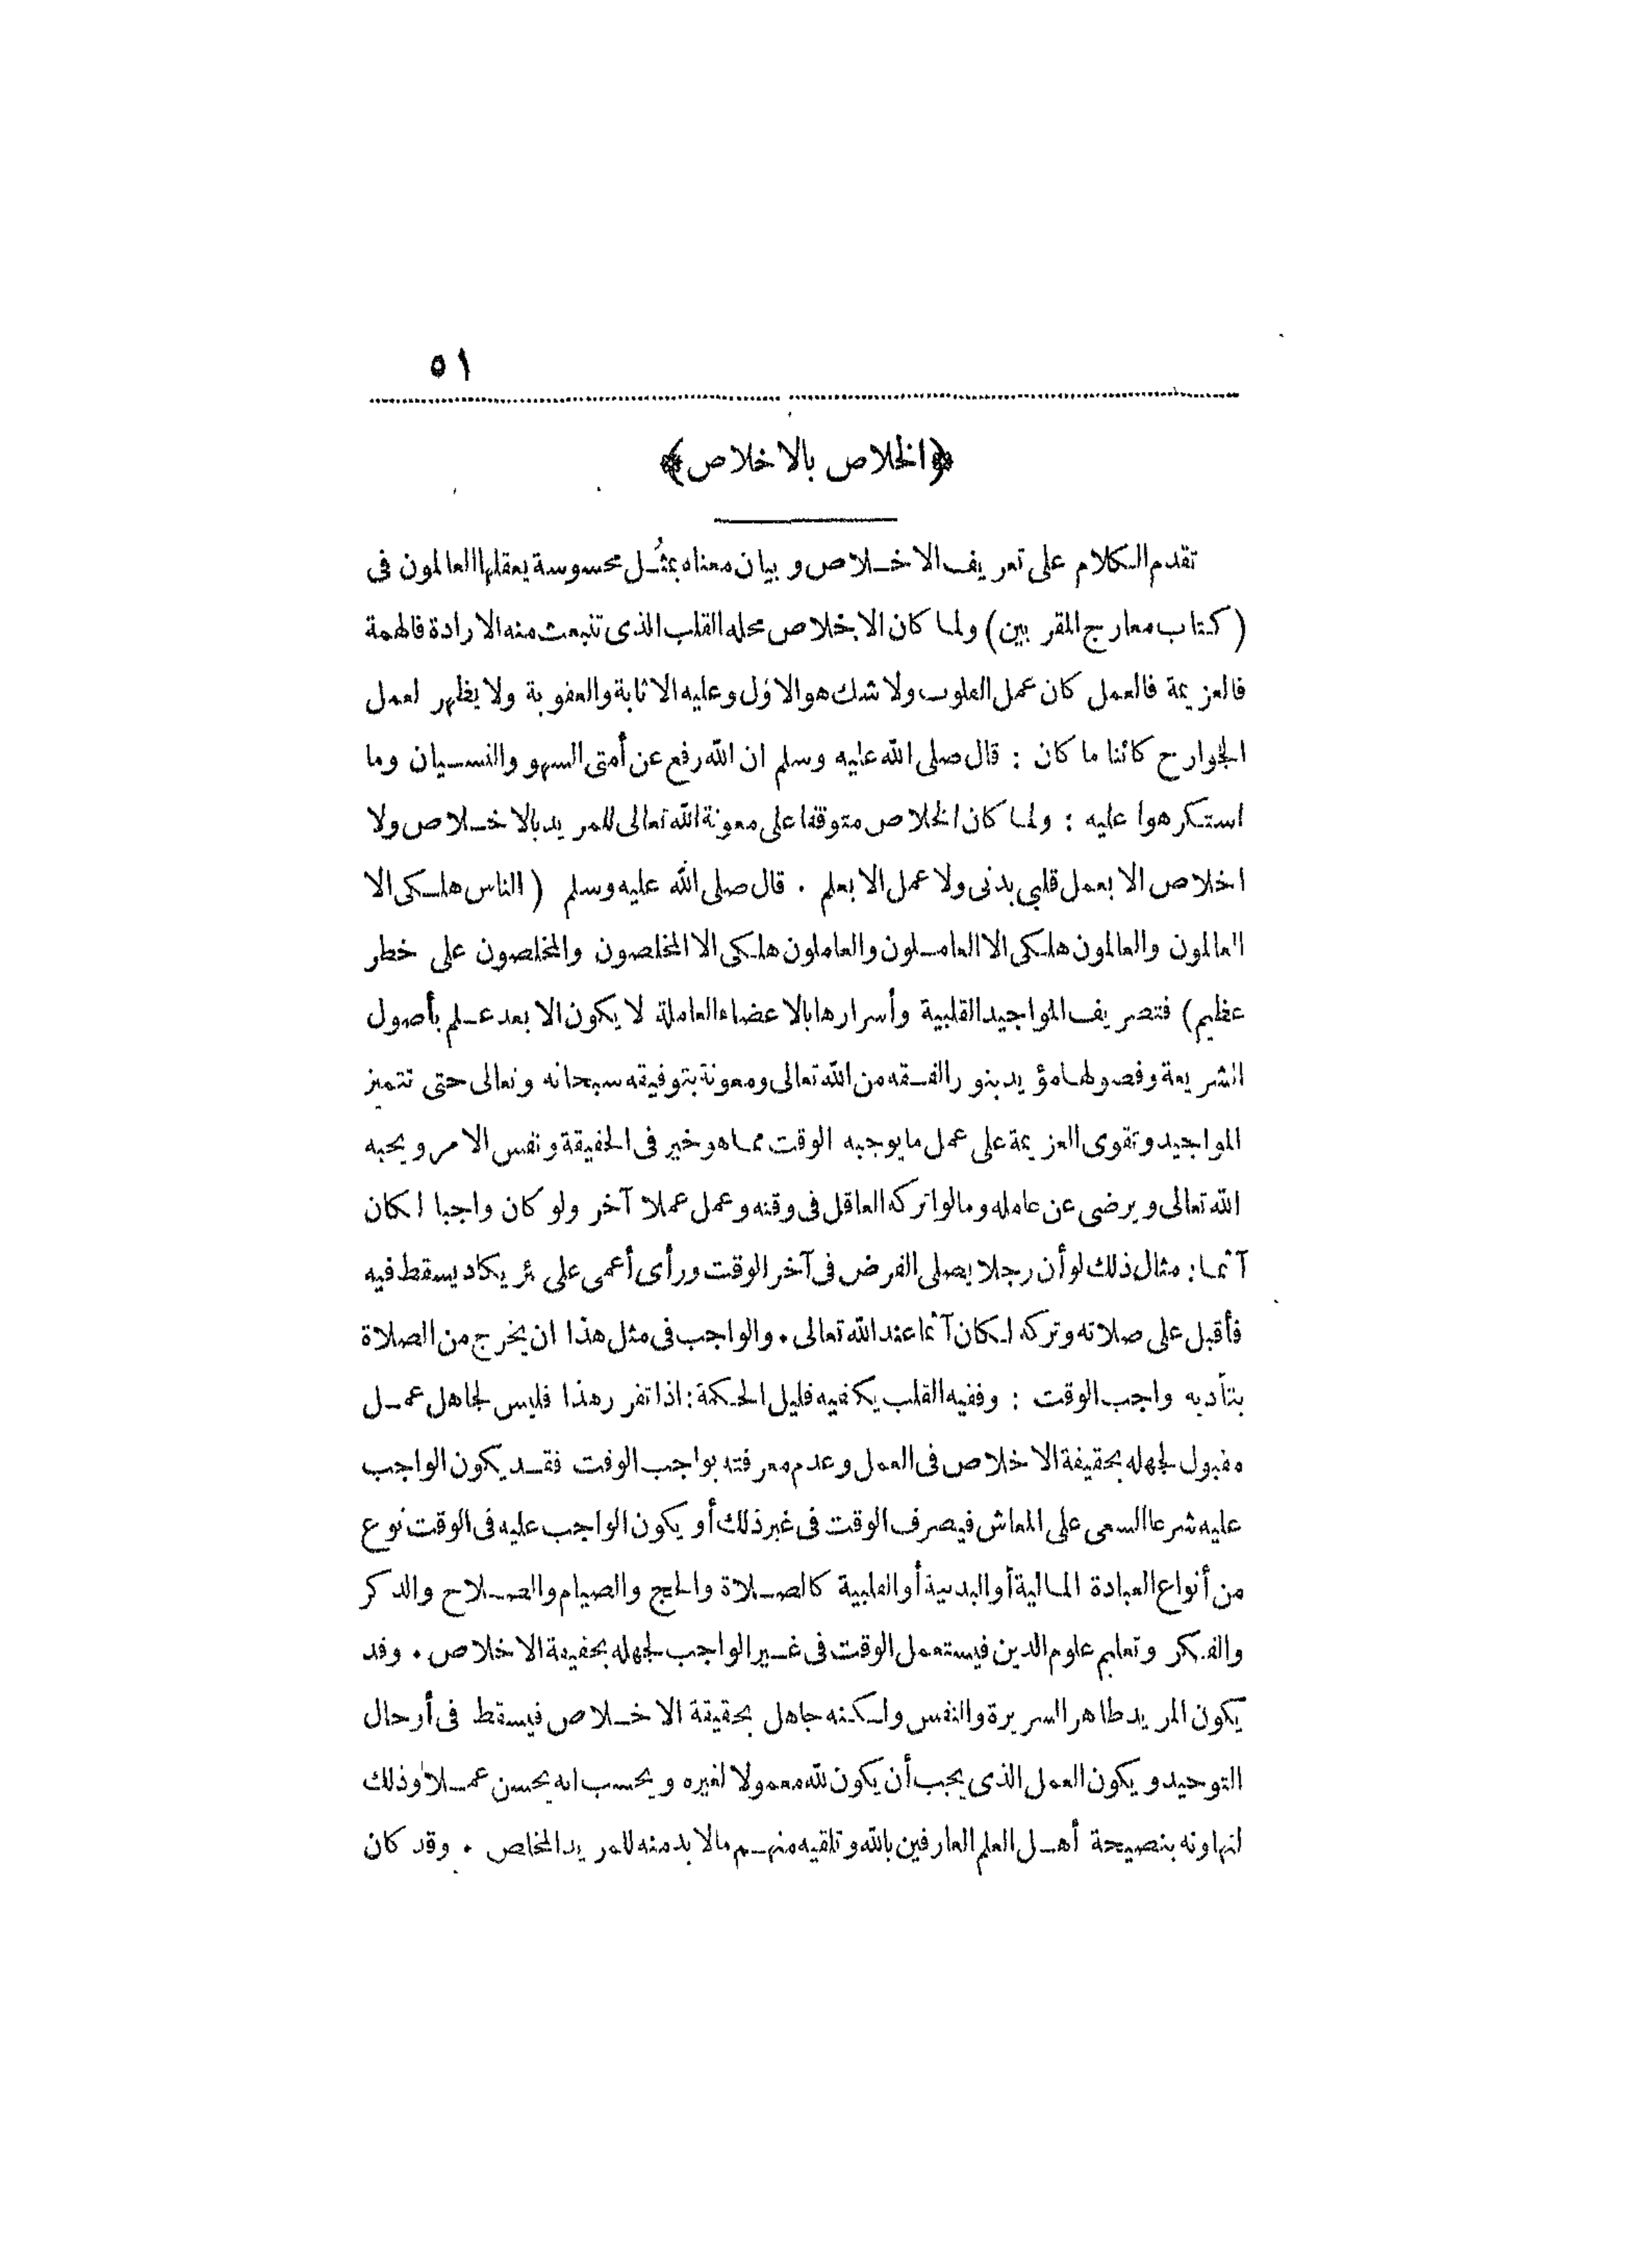 ٥١
﴿الخلاص بالاخلاص﴾
تقدم الكلام على تعريف الاخلاص وبيان معناه بمثُل محسوسة يعقلها العالمون فى
(كتاب معارج المقربين) ولما كان الاخلاص محله القلب الذى تنبعث منه الارادة فالهمة
فالعزيمة فالعمل كان عمل القلوب ولا شك هو الاوّل وعليه الاثابة والعقوبة ولا يظهر لعمل
الجوارح كائنا ما كان : قال صلى الله عليه وسلم ان الله رفع عن أمتى السهو والنسيان وما
استكرهوا عليه : ولما كان الخلاص متوقفا على معونة الله تعالى للمريد بالاخلاص ولا
اخلاص الا بعمل قلبي بدنى ولا عمل الا بعلم . قال صلى الله عليه وسلم (الناس هلكى الا
العالمون والعالمون هلكى الا العاملون والعاملون هلكى الا المخلصون والمخلصون على خطر
عظيم) فتصريف المواجيد القلبية وأسرارها بالاعضاء العاملة لا يكون الا بعد علم بأصول
الشريعة وفصولها مؤيد بنور الفقه من الله تعالى ومعونة بتوفيقه سبحانه وتعالى حتى تتميز
المواجيد وتقوى العزيمة على عمل ما يوجبه الوقت مما هو خير فى الحقيقة ونفس الامر ويحبه
الله تعالى ويرضى عن عامله وما لو اتركه العاقل فى وقته وعمل عملا آخر ولو كان واجبا لكان
آثما : مثال ذلك لو أن رجلا يصلى الفرض فى آخر الوقت ورأى أعمى على بئر يكاد يسقط فيه
فأقبل على صلاته وتركه لكان آثما عند الله تعالى . والواجب فى مثل هذا ان يخرج من الصلاة
بتأدية واجب الوقت : وفقيه القلب يكفيه قليل الحكمة : اذا تقرر هذا فليس لجاهل عمل
مقبول لجهله بحقيقة الاخلاص فى العمل وعدم معرفته بواجب الوقت فقد يكون الواجب
عليه شرعا السعى على المعاش فيصرف الوقت فى غير ذلك أو يكون الواجب عليه فى الوقت نوع
من أنواع العبادة المالية أو البدنية أو القلبية كالصلاة والحج والصيام والصلاح والذكر
والفكر وتعليم علوم الدين فيستعمل الوقت فى غير الواجب لجهله بحقيقة الاخلاص . وقد
يكون المريد طاهر السريرة والنفس ولكنه جاهل بحقيقة الاخلاص فيسقط فى أوحال
التوحيد ويكون العمل الذى يجب أن يكون لله معمولا لغيره ويحسب انه يحسن عملا وذلك
لتهاونه بنصيحة أهل العلم العارفين بالله وتلقيه منهم ما لا بد منه للمريد المخلص . وقد كان